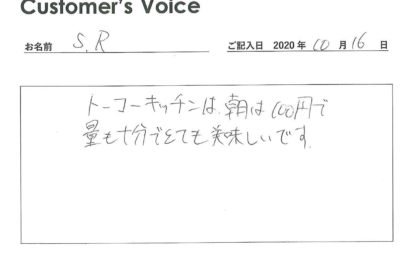 Customer's Voice
お名前 S.R ご記入日 2020 年 10 月 16 日
トーコーキッチンは、朝は100円で
量も十分でとても美味しいです。